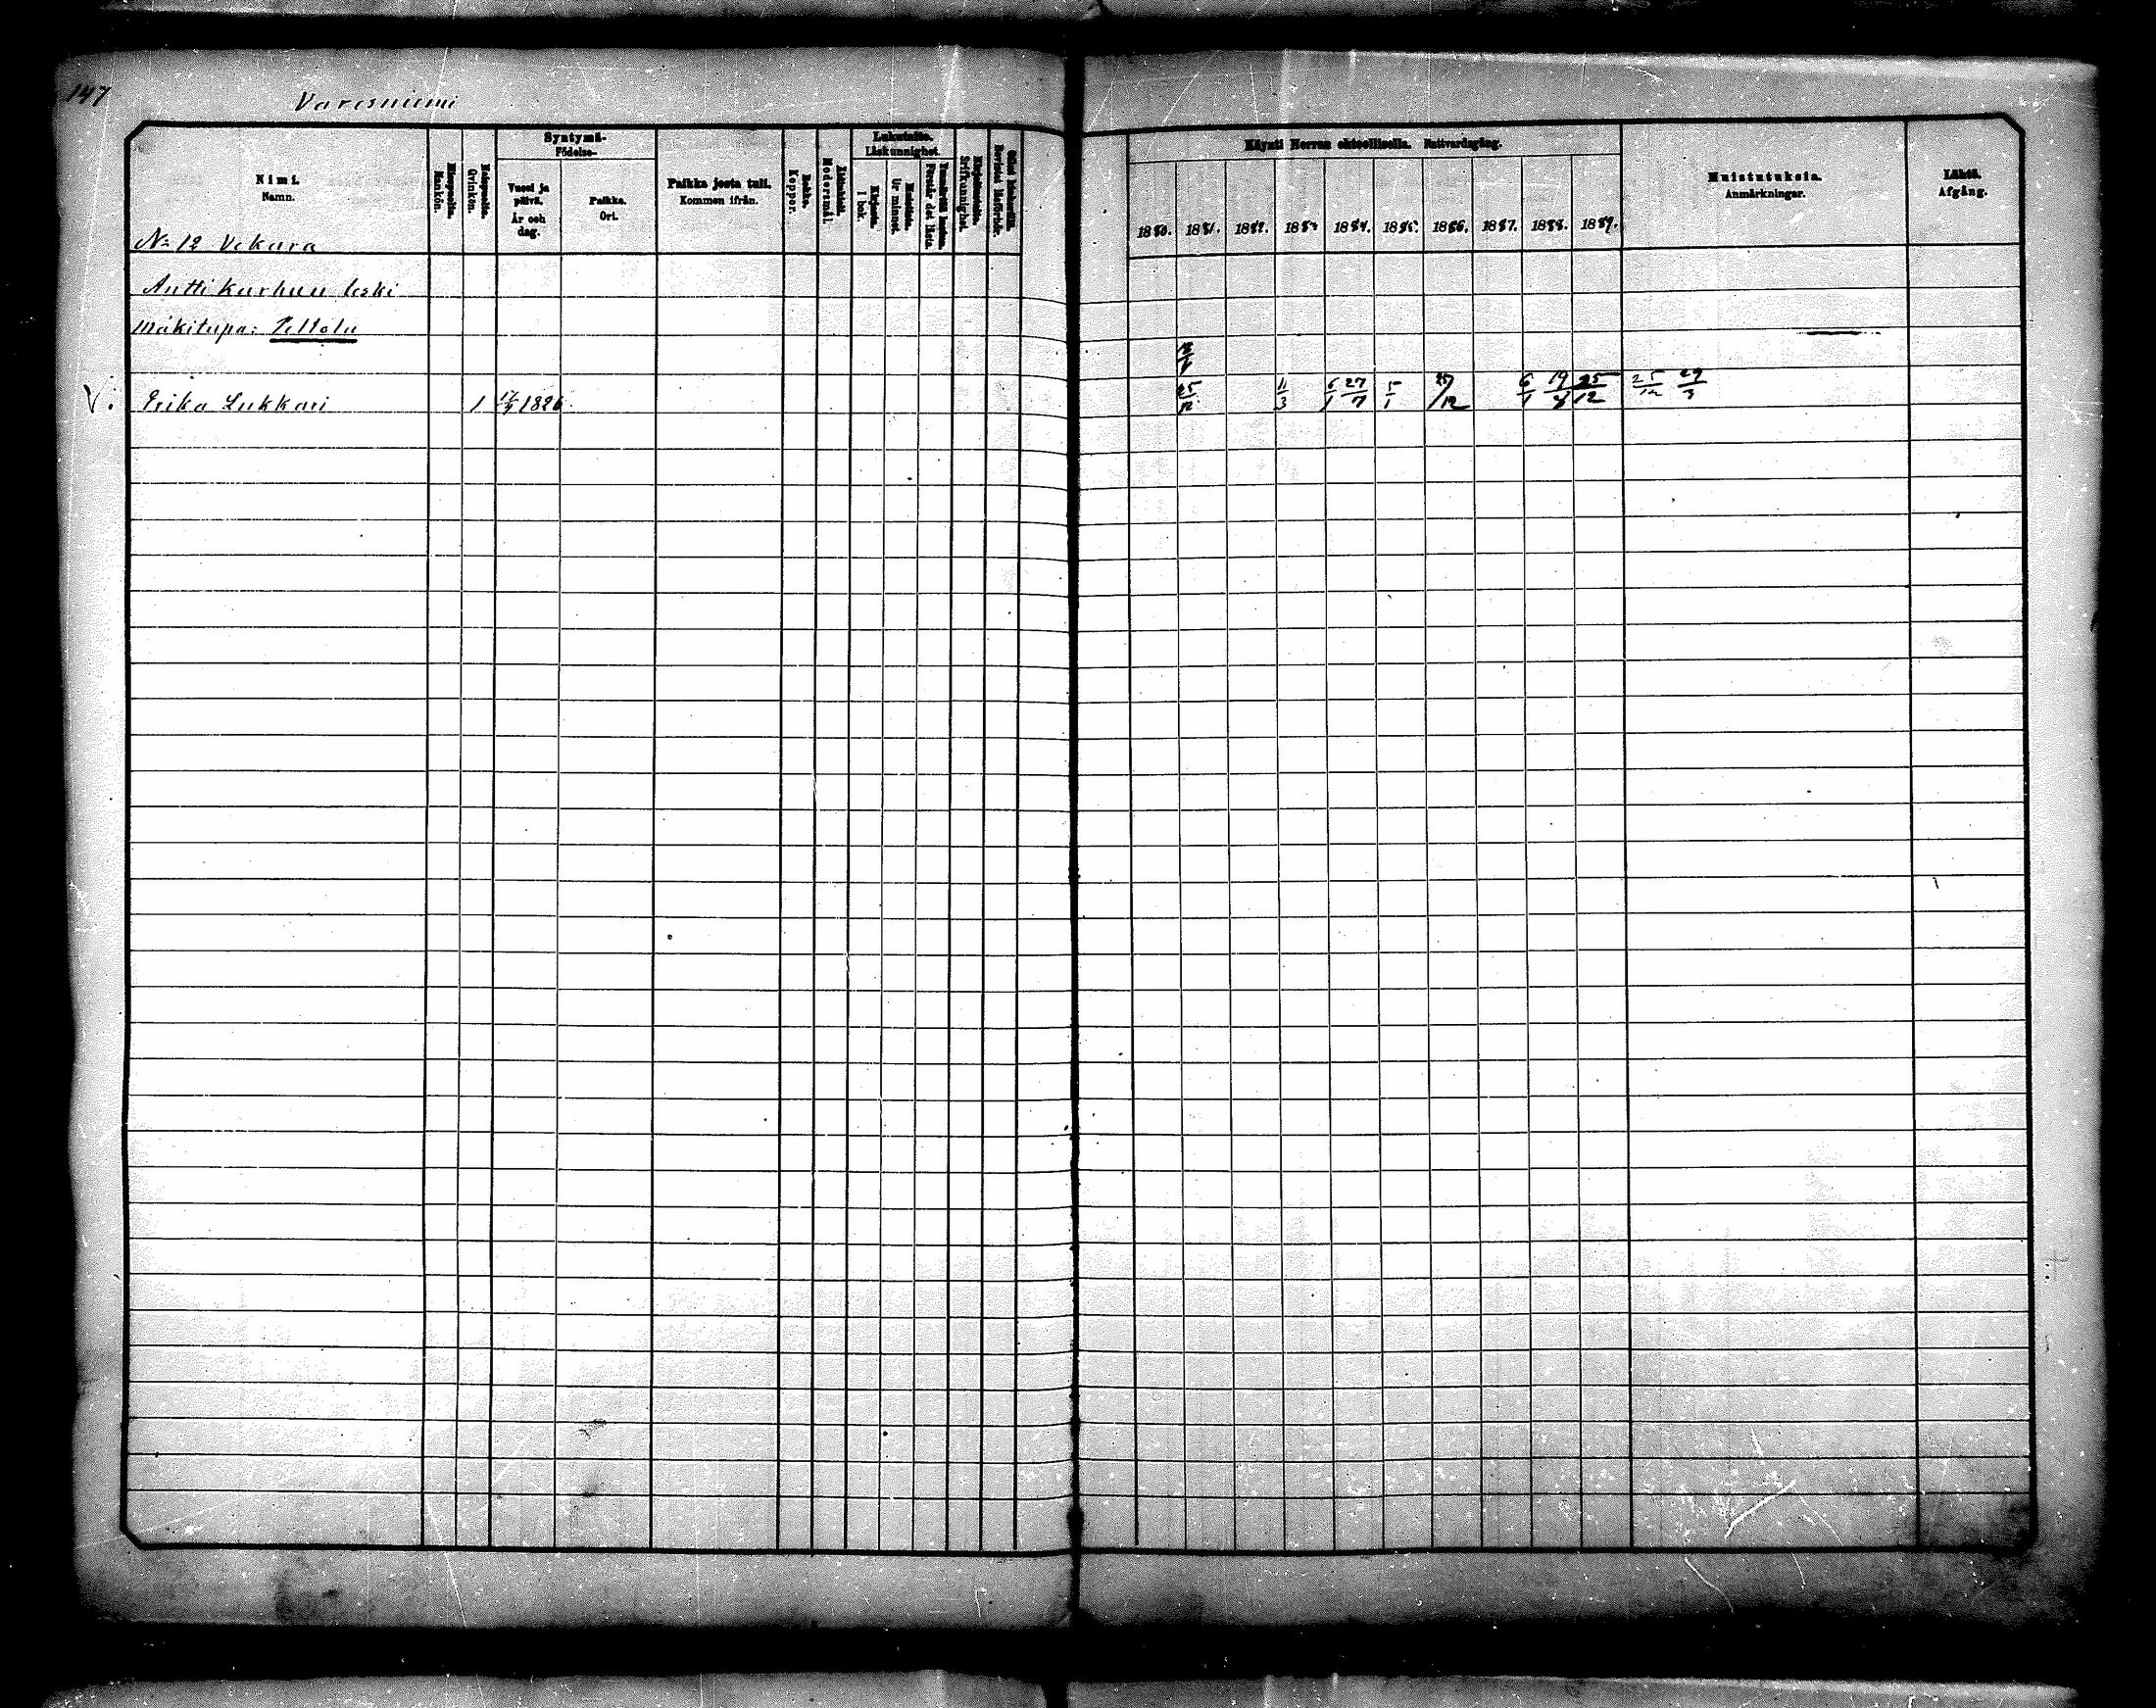 147
Varisniemi
Nimi.
Namn.
Miespuolia.
Mankön.
Vaimopuolia.
Qvinkön.
Syntymä-
Födelse-
Vuosi ja päivä.
År och dag.
Paikka.
Ort.
Paikka josta tuli.
Kommen ifrån.
Rokko.
Koppor.
Modersmål.
Lukutaito.
Läskunnighet.
Kirjasta.
I bok.
Ur minnet.
Förstår det lästa
Käynti Herran ehtoollisella. Nattvardsgång.
1880. 1881. 1882. 1883 1884. 1885. 1886. 1887. 1888. 1889.
Muistutuksia.
Anmärkningar.
Lähtö.
Afgång.
No 12 Vekara
Antti Karhun leski
Mäkitupa: Peltola
V. Erika Lukkari 1 17/9 1826 25/12 11/3 6/1 27/7 5/1 25/12 6/1 19/8 25/12 25/12 29/3